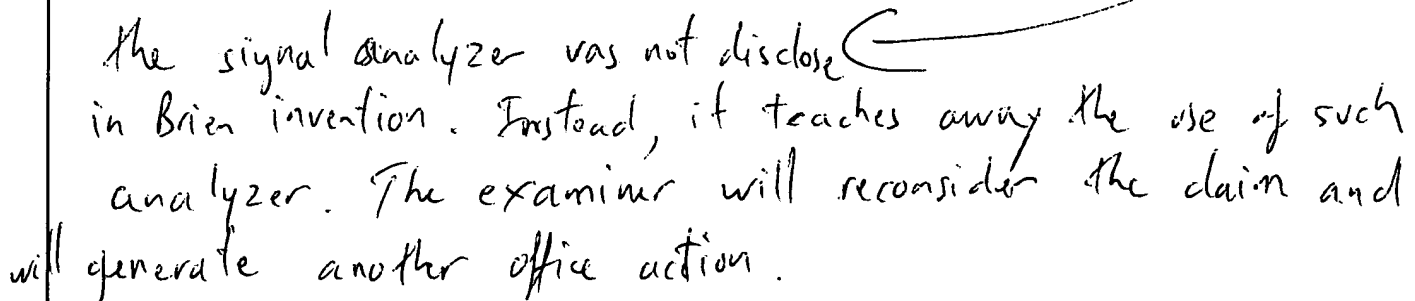 the signal analyzer vas not disclose
in Brien invention. Instead, it teaches away the use of such
analyzer. The examiner will reconsider the claim and
will generate another office action.